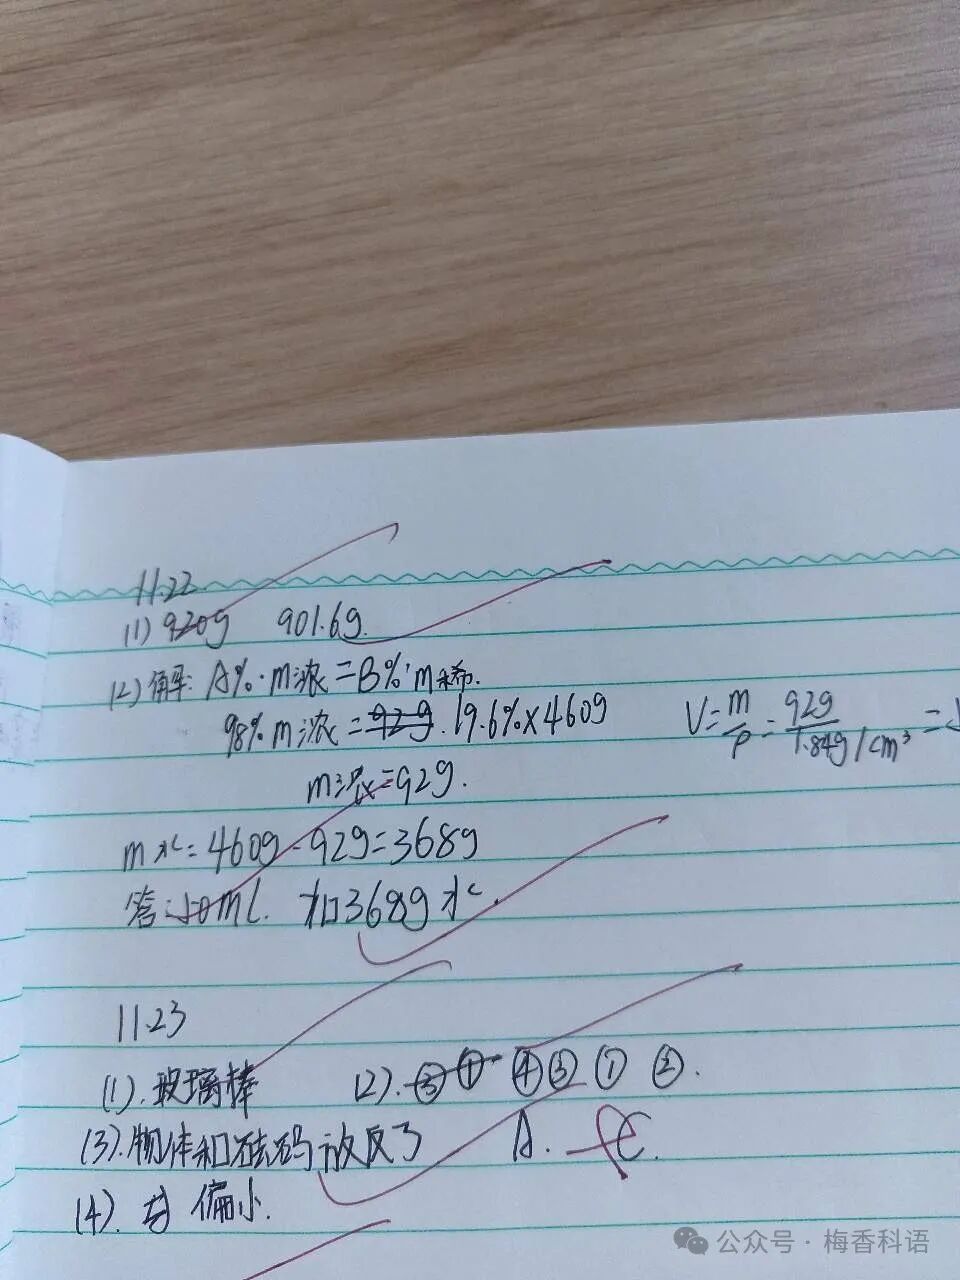 11.22
(1) 920g 901.6g
(2) 解: A%·m浓=B%·m稀.
98%m浓=92g.19.6%×460g V=m/ρ=92g/1.84g/cm³=
m浓=92g.
m水=460g-92g=368g
答:50mL 加368g水.
11.23
(1).玻璃棒 (2).③①④③①②.
(3).物体和砝码放反了 A. C.
(4). 偏小.
公众号·梅香科语